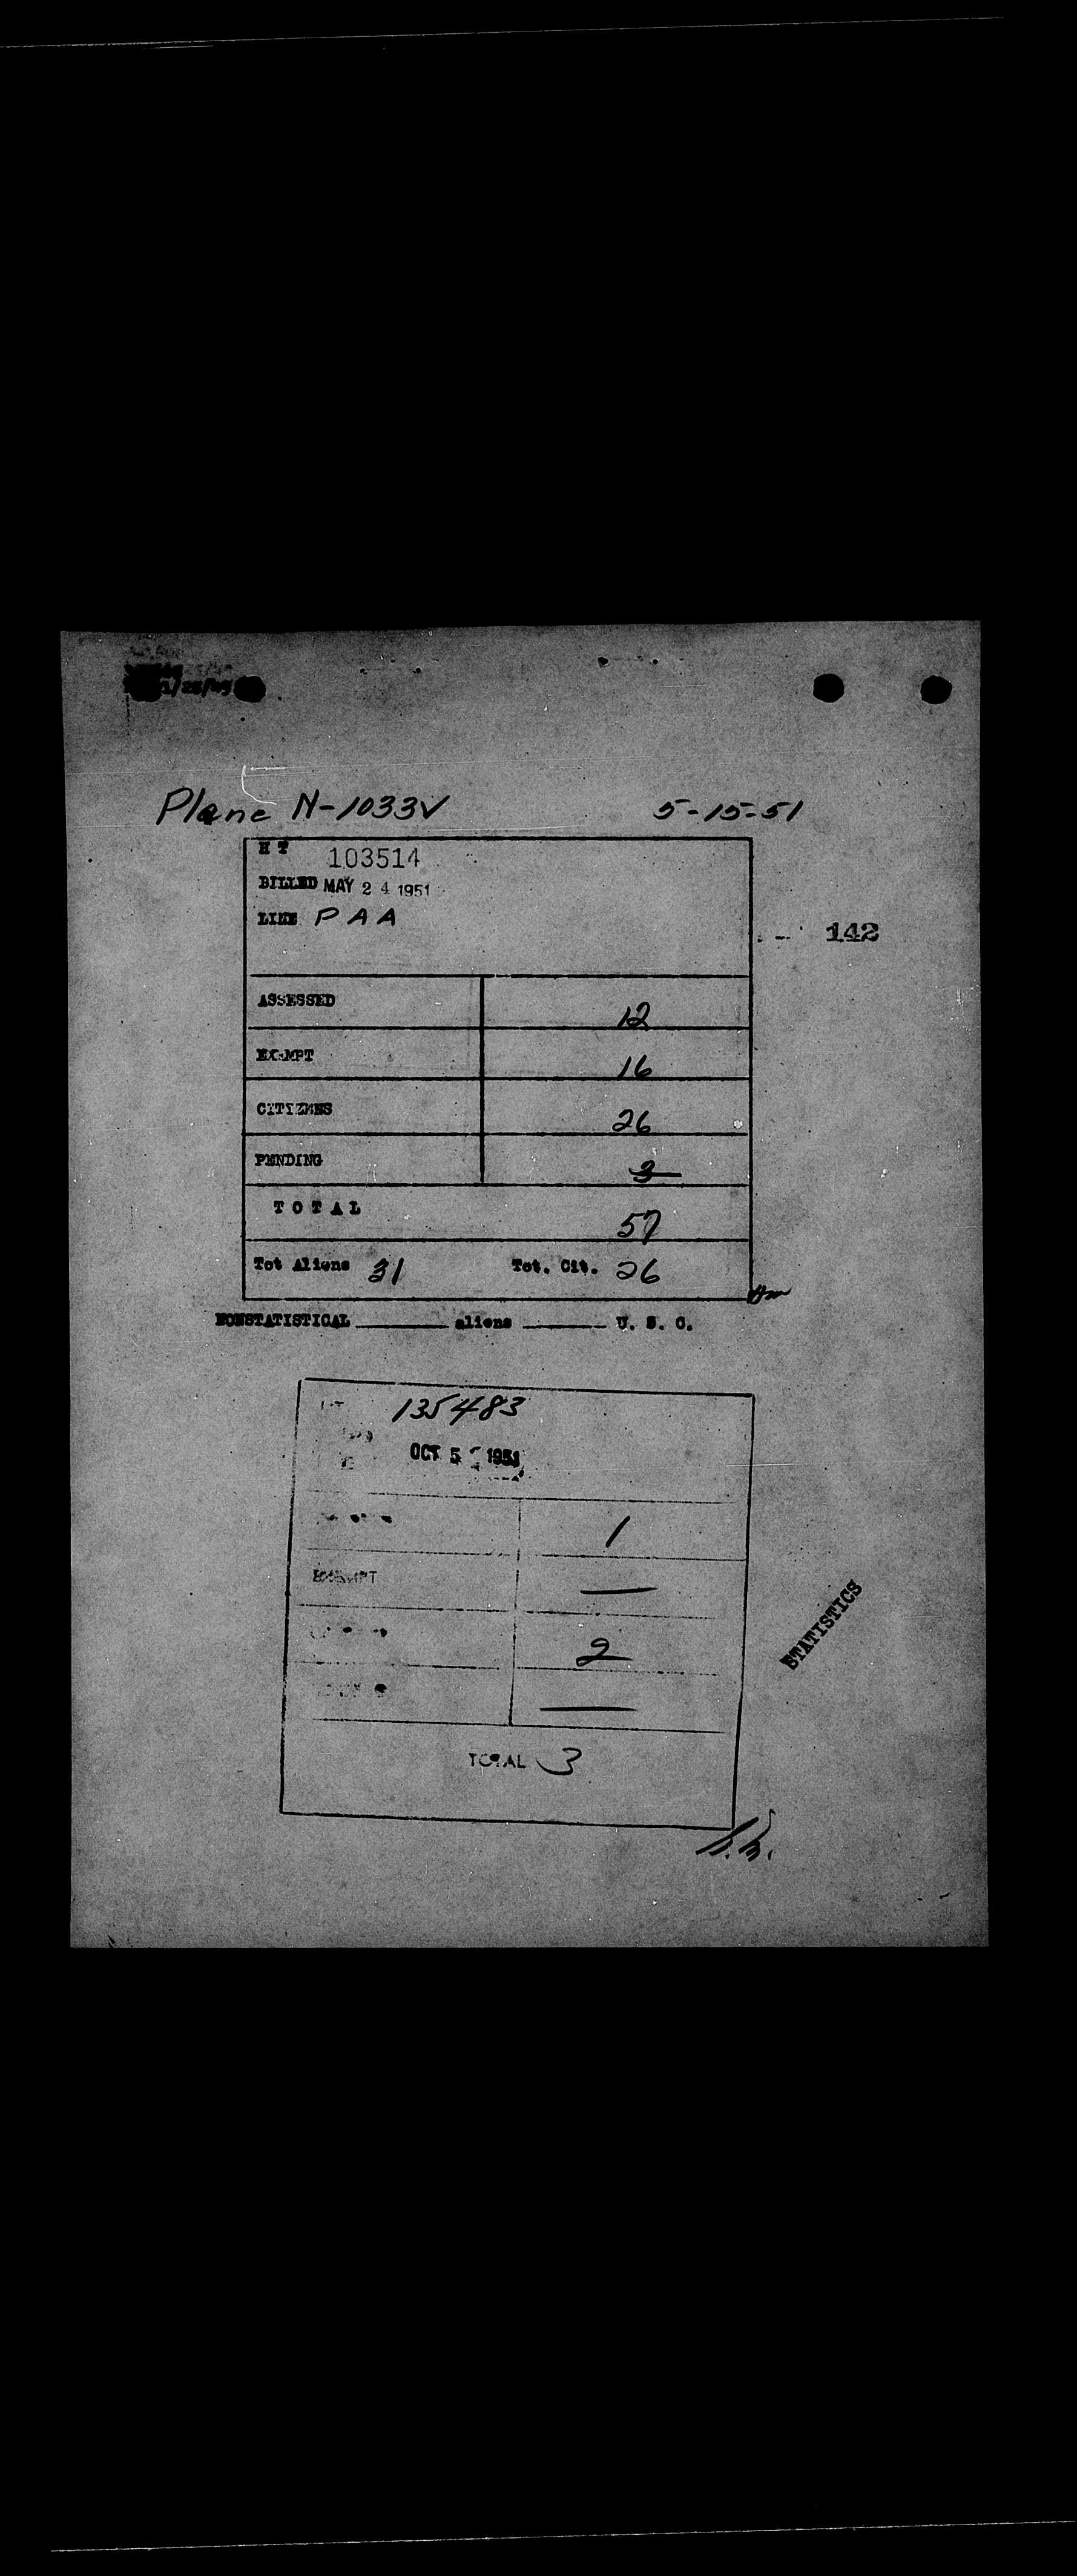 Plane N-1033V 5-15-51
HT 103514
BILLED MAY 24 1951
LINE PAA
142
ASSESSED 12
EXEMPT 16
CITIZENS 26
PENDING 3
TOTAL 57
Tot Aliens 31 Tot. Cit. 26
NONSTATISTICAL ______ aliens ______ U. S. C.
135483
OCT 5 1951
1
EXEMPT —
2
—
TOTAL 3
STATISTICS